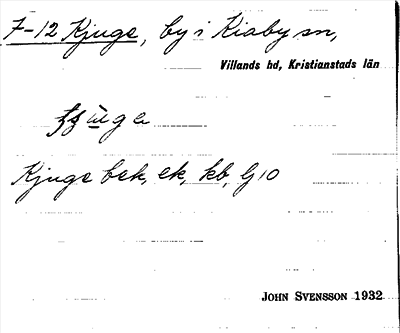 7-12 Kjuge, by i Kiaby sn,
Villands hd, Kristianstads län
Kjuge bsk, ek, kb, G10
JOHN SVENSSON 1932